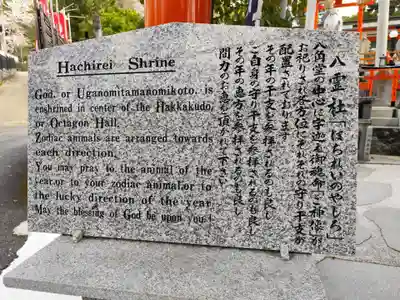 Hachirei Shrine
God, or Uganomitamanomikoto, is
enshrined in center of the Hakkakudo,
or Octagon Hall.
Zodiac animals are arranged towards
each direction.
You may pray to the animal of the
year,or to your zodiac animal,or to
the lucky direction of the year.
May the blessing of God be upon you!
「八霊社」はちれいのやしろ
八角堂の中心に宇迦之御魂命ご神像が
お祀りされ各方位にそれぞれの守り干支が
配置されております
その年の干支を参拝されるのも良し
ご自身の守り干支を参拝されるのも良し
その年の恵方を参拝されるのも良し
開力のお力をご頂入れ下さいませ